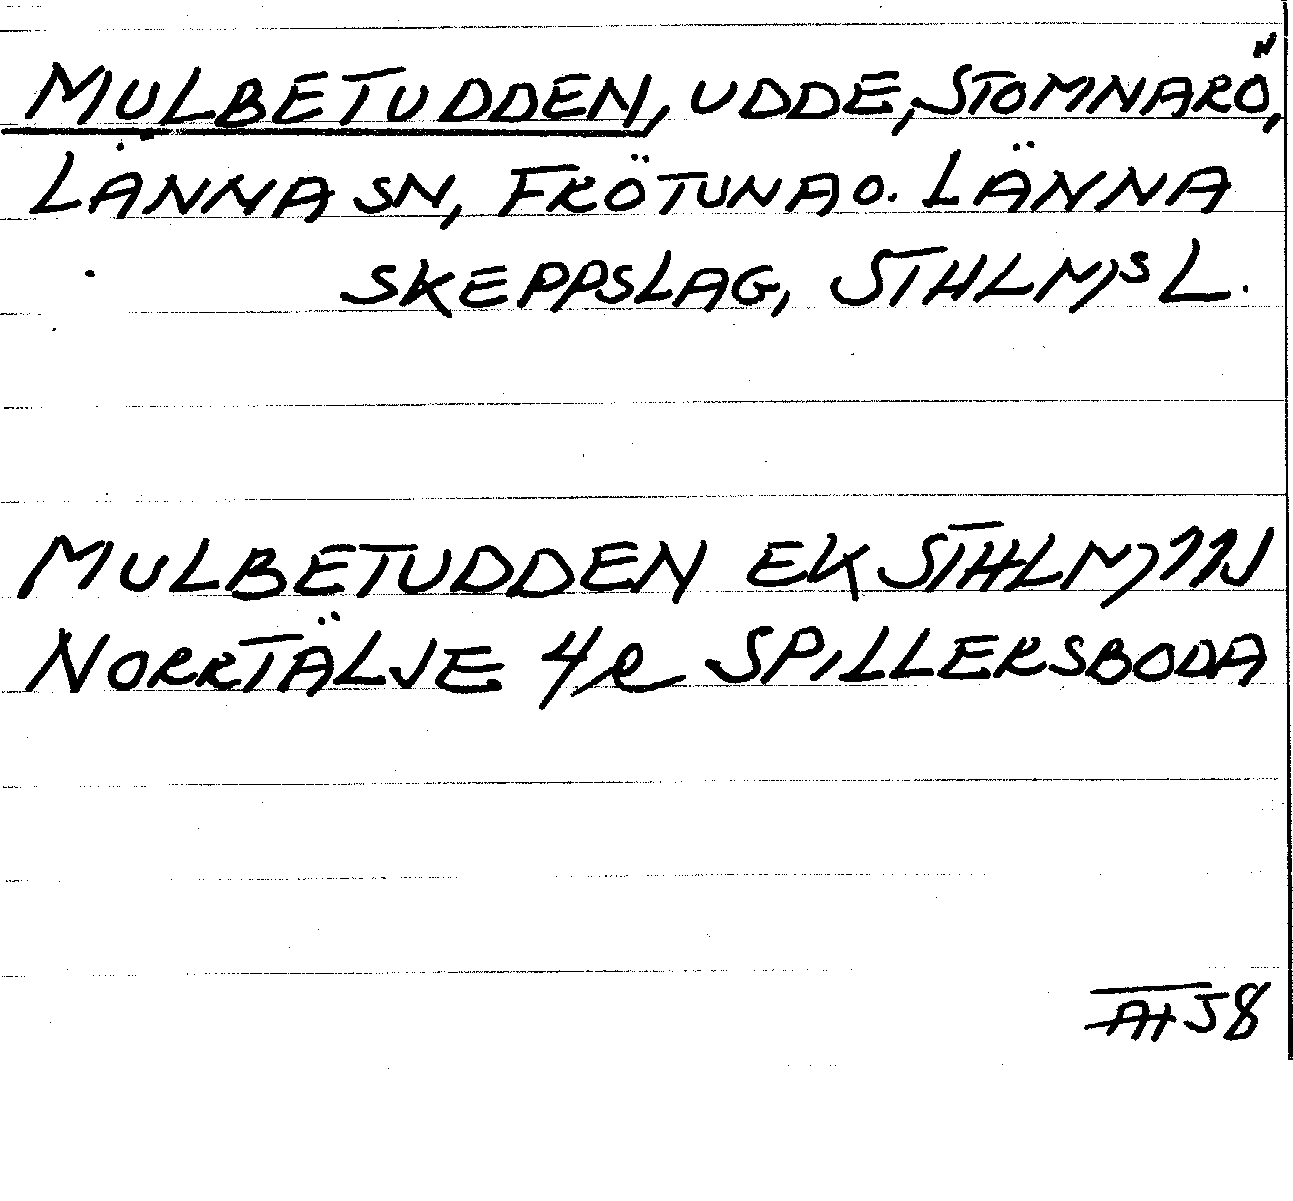 MULBETUDDEN, UDDE, STOMNARÖ,
LÄNNA SN, FRÖTUNA O. LÄNNA
SKEPPSLAG, STHLMS L.
MULBETUDDEN EK STHLM 11N
NORRTÄLJE 4e SPILLERSBODA
58